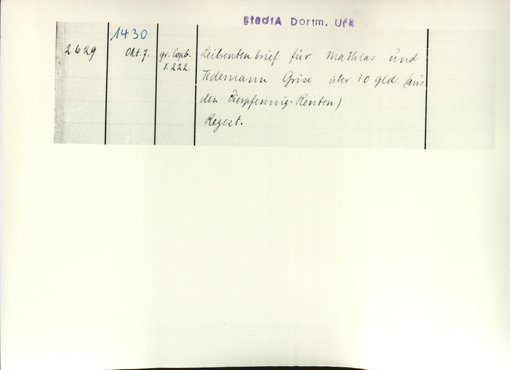 StadtA Dortm. Urk
1430
2629 Okt. 7. gr. Copb. Leibrentenbrief für Mathias und
f. 222. Tidemann Grise über 10 gld (aus
den Bierpfennig-Renten)
Regest.